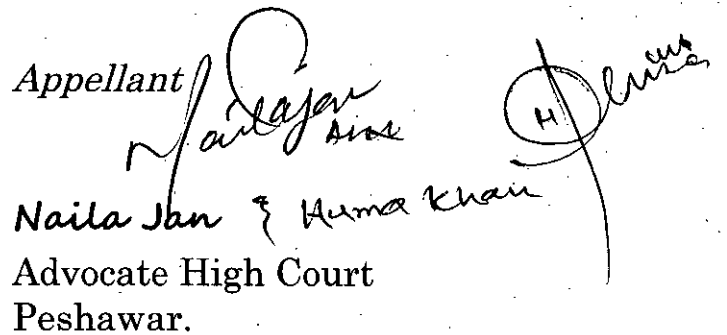 Appellant
Naila Jan & Huma Khan
Advocate High Court
Peshawar.